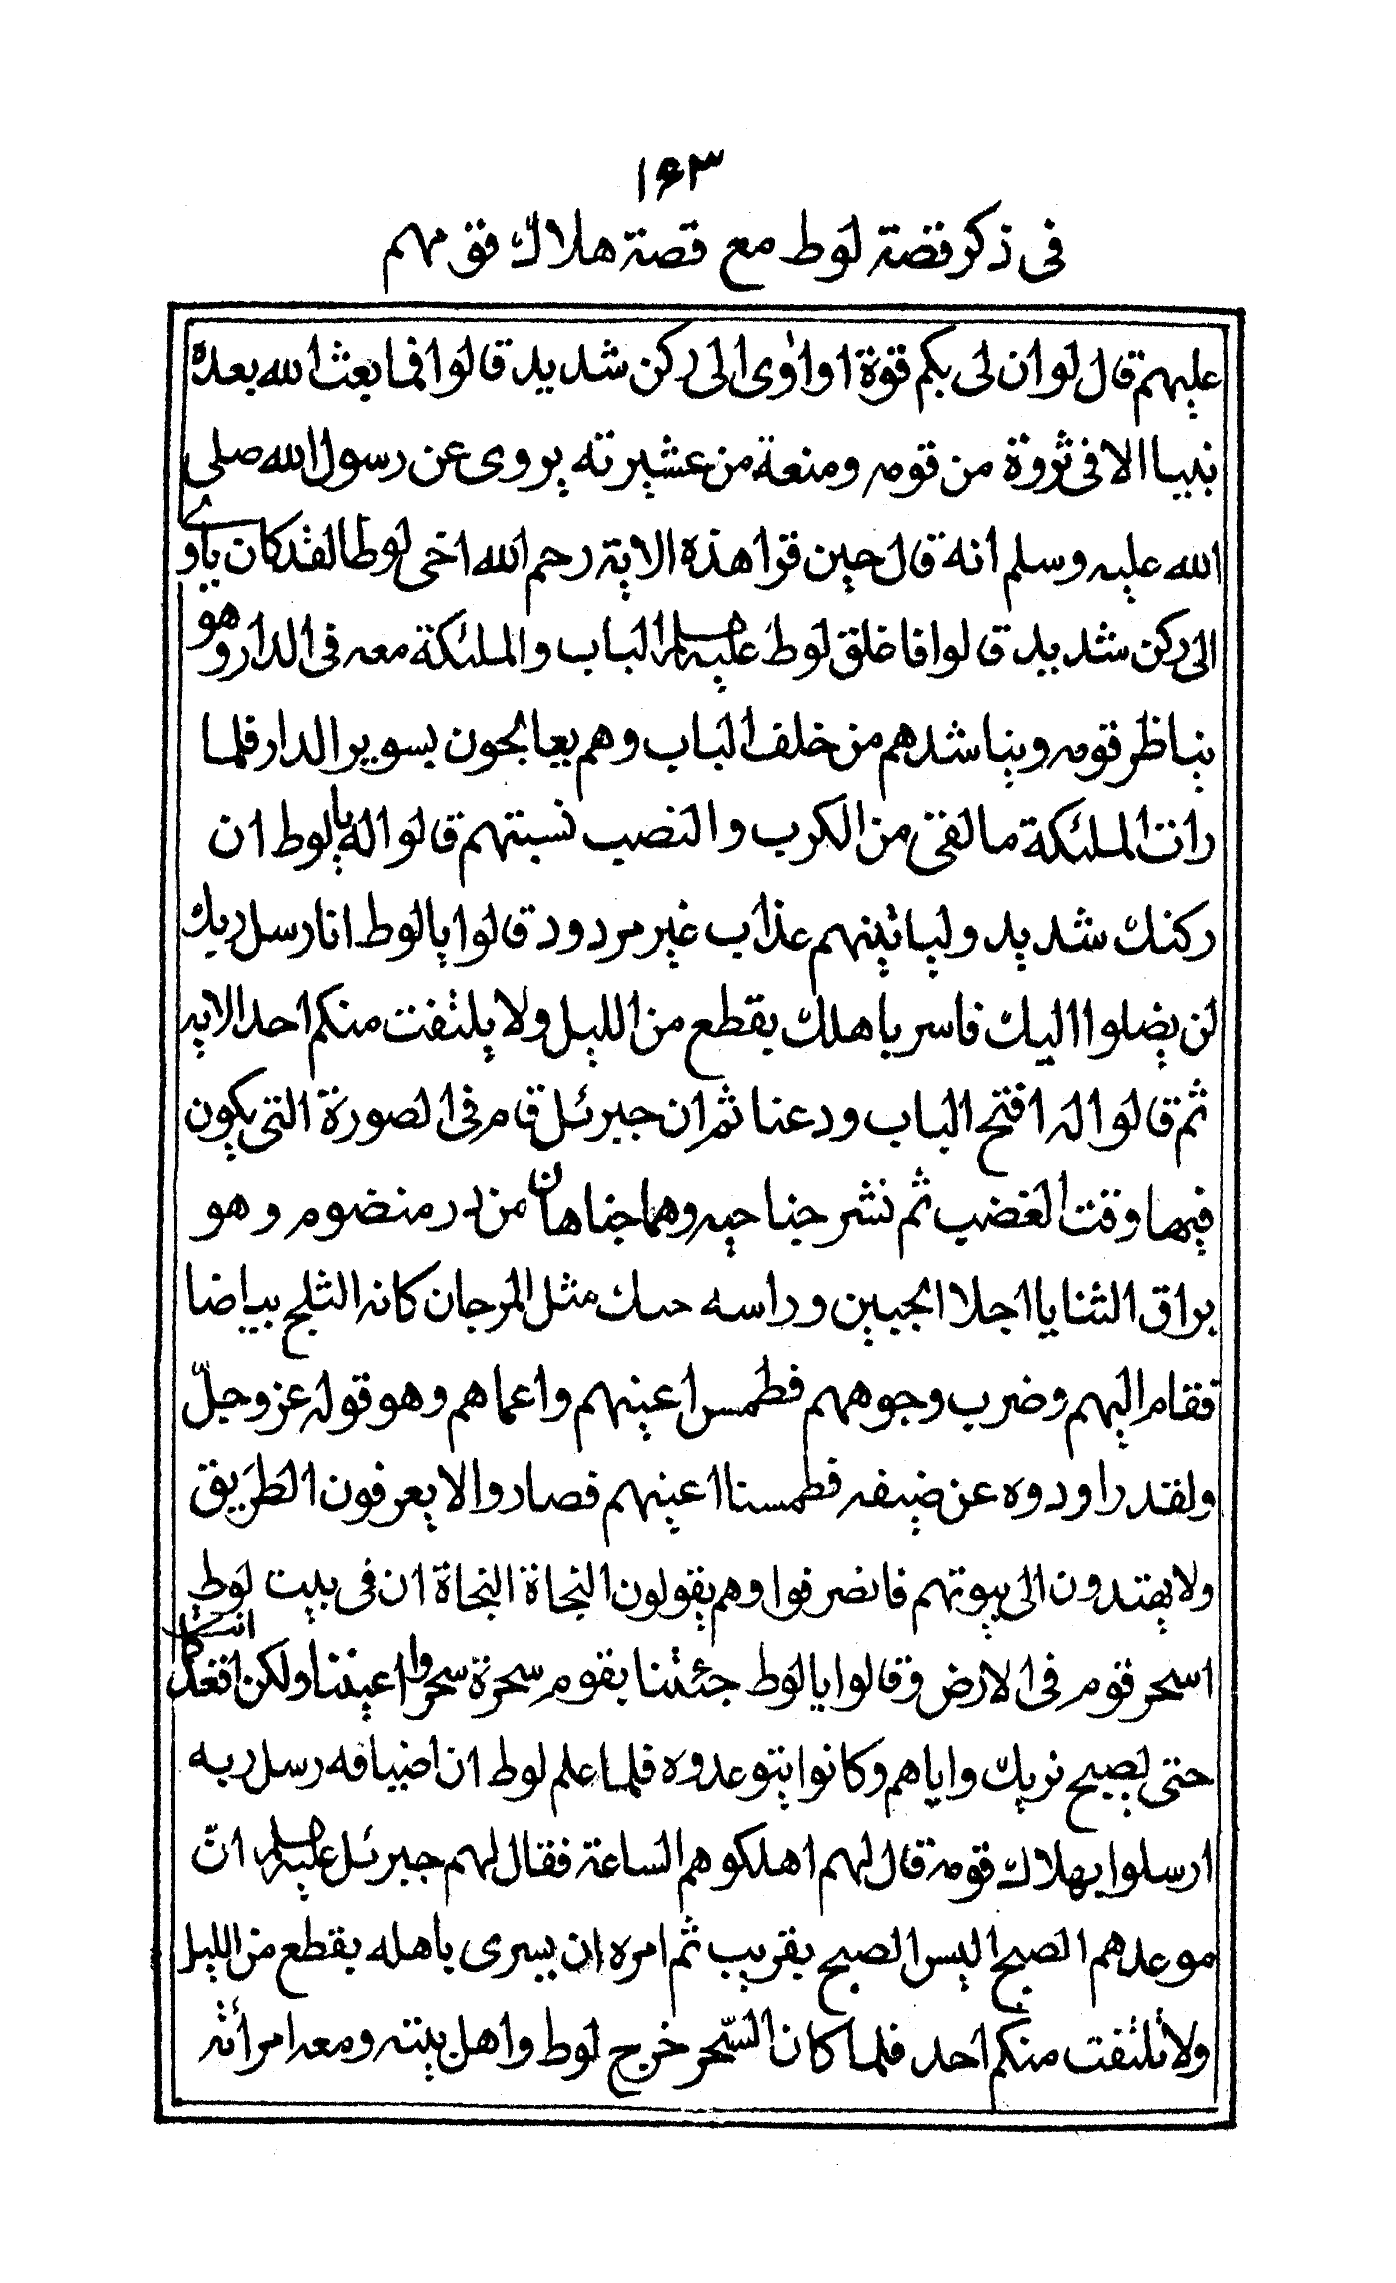 ١٦٣
فى ذكر قصة لوط مع قصة هلاك قومهم
عليهم قال لو ان لى بكم قوة او اوى الى ركن شديد قالوا فما بعث الله بعده
نبيا الا فى ثروة من قومه ومنعة من عشيرته يروى عن رسول الله صلى
الله عليه وسلم انه قال حين قرا هذه الاية رحم الله اخى لوطا لقد كان ياوى
الى ركن شديد قالوا فاغلق لوط عليه السلم الباب والملئكة معه فى الدار وهو
يناظر قومه ويناشدهم من خلف الباب وهم يعالجون بسوير الدار فلما
رات الملئكة ما لقى من الكرب والنصب نسبتهم قالوا له يا لوط ان
ركنك شديد وليا تينهم عذاب غير مردود قالوا يا لوط انا رسل ربك
لن يصلوا اليك فاسر باهلك بقطع من الليل ولا يلتفت منكم احد الاية
ثم قالوا له افتح الباب ودعنا ثم ان جبرئل قام فى الصورة التى يكون
فيها وقت الغضب ثم نشر جناحيه وهما جناهان من در منضوم وهو
براق الثنايا اجلا الجبين وراسه حبك مثل المرجان كانه الثلج بياضا
فقام اليهم وضرب وجوههم فطمس اعينهم واعماهم وهو قوله عز وجلّ
ولقد راودوه عن ضيفه فطمسنا اعينهم فصاروا لا يعرفون الطريق
ولا يهتدون الى بيوتهم فانصرفوا وهم يقولون النجاة النجاة ان فى بيت لوط
اسحر قوم فى الارض وقالوا يا لوط جئتنا بقوم سحرة سحروا اعيننا ولكن اقعد كا انت
حتى لصبح نريك واياهم وكانوا يتوعدوه فلما علم لوط ان اضيافه رسل ربه
ارسلوا بهلاك قومه قال لهم اهلكوهم الساعة فقال لهم جبرئل عليه السلم انّ
موعدهم الصبح اليس الصبح بقريب ثم امره ان يسرى باهله بقطع من الليل
ولا تلتفت منكم احد فلما كان السّحر خرج لوط واهل بيته ومعه امراته